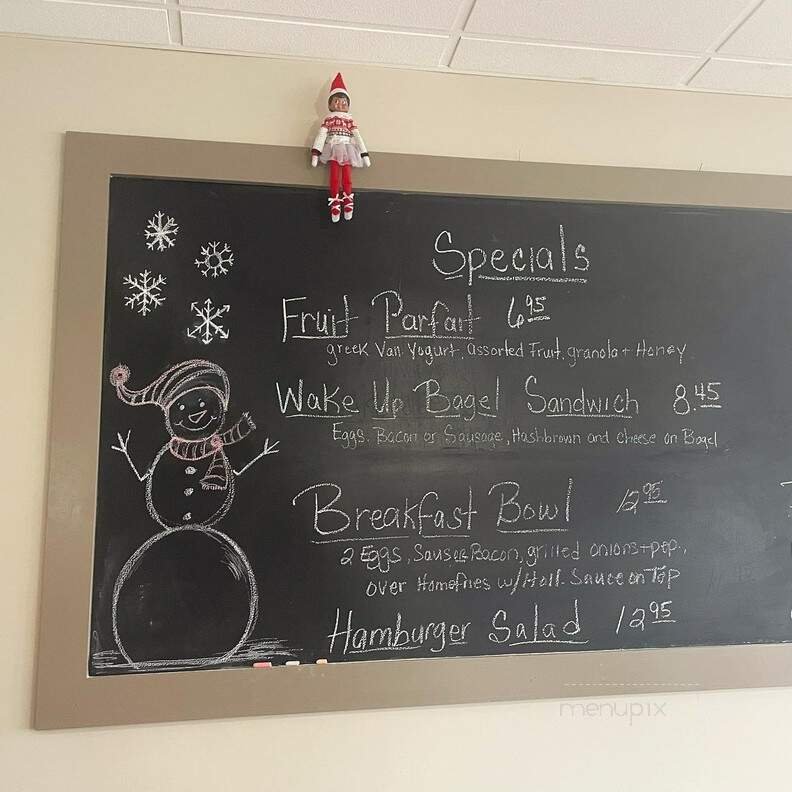 Specials
Fruit Parfait 6.95
greek Van Yogurt, assorted Fruit, granola + Honey
Wake Up Bagel Sandwich 8.45
Eggs, Bacon or Sausage, Hashbrown and cheese on Bagel
Breakfast Bowl 12.95
2 Eggs, Saus or Bacon, grilled onions + pep.,
over Homefries w/ Holl. Sauce on Top
Hamburger Salad 12.95
menupix